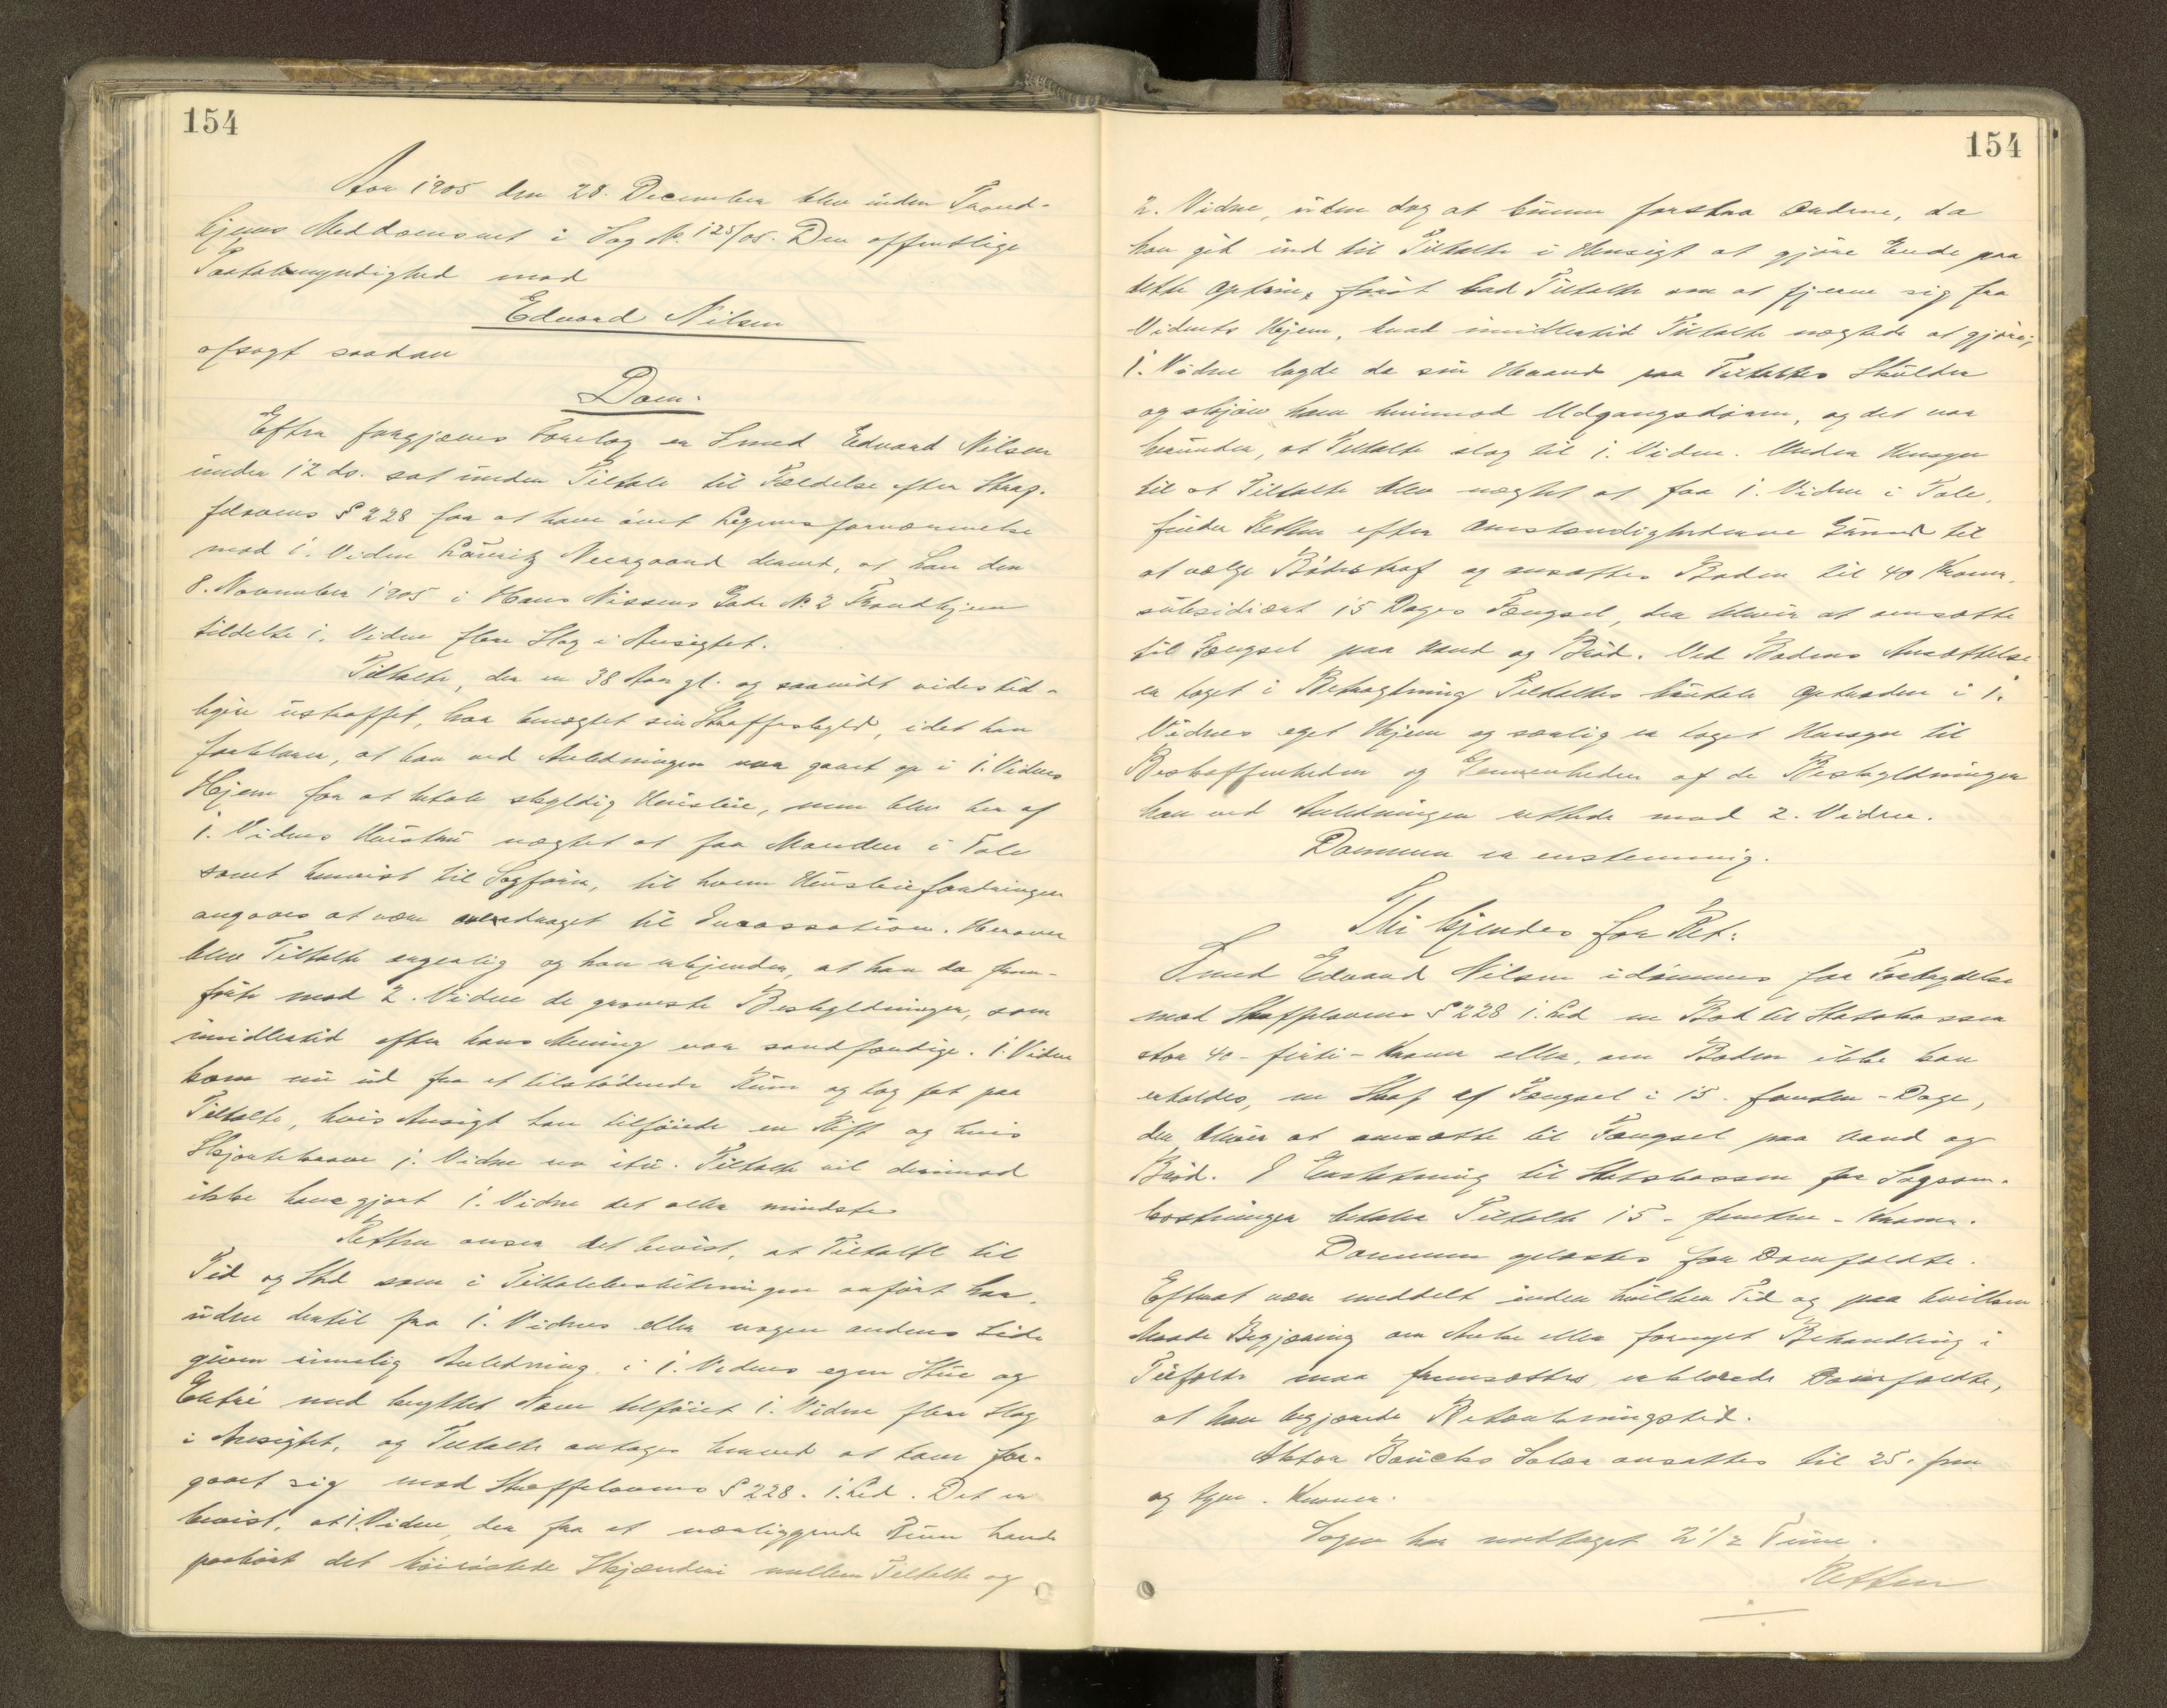 154
Aar 1905 den 28. December blev inden Trond-
hjems Meddomsret i Sag No. 125/05. Den offentlige
Paatalemyndighed mod
Edvard Nilsen
afsagt saadan
Dom:
Efter forgjæves Forelæg er Smed Edvard Nilsen
under 12 ds. sat under Tiltale til Fældelse efter Straf-
felovens § 228 for at have øvet Legemsfornærmelse
mod 1. Vidne Lauritz Neergaard derved, at han den
8. November 1905 i Hans Nissens Gade No. 2 Trondhjem
tildelte 1. Vidne flere Slag i Ansigtet.
Tiltalte, der er 38 Aar gl. og saavidt vides tid-
ligere ustraffet, har benægtet sin Straffeskyld, idet han
forklarer, at han ved Anledningen var gaaet op i 1. Vidnes
Hjem for at betale skyldig Husleie, men blev her af
1. Vidnes Hustru nægtet at faa Manden i Tale
samt henvist til Sagfører, til hvem Husleiefordringen
angaves at være overdraget til Incassation. Herover
blev Tiltalte ærgerlig og han erkjender, at han da frem-
førte mod 2. Vidne de groveste Beskyldninger, som
imidlertid efter hans Mening var sandfærdige. 1. Vidne
kom nu ud fra et tilstødende Rum og tog fat paa
Tiltalte, hvis Ansigt han tilføiede en Rift og hvis
Skjortekrave 1. Vidne rev itu. Tiltalte vil derimod
ikke have gjort 1. Vidne det aller mindste.
Retten anser det bevist, at Tiltalte til
Tid og Sted som i Tiltalebeslutningen anført har,
uden dertil fra 1. Vidnes eller nogen andens Side
given rimelig Anledning, i 1. Vidnes egen Stue og
Entré med knyttet Næve tilføiet 1. Vidne flere Slag
i Ansigtet, og Tiltalte antages herved at have for-
gaaet sig mod Straffelovens § 228. 1. Led. Det er
bevist, at 1. Vidne, der fra et nærliggende Rum havde
paahørt det høirøstede Skjænderi mellem Tiltalte og
154
2. Vidne, uden dog at kunne forstaa Ordene, da
han gik ind til Tiltalte i Hensigt at gjøre Ende paa
dette Optrin, først bad Tiltalte om at fjerne sig fra
Vidnets Hjem, hvad imidlertid Tiltalte nægtede at gjøre;
1. Vidne lagde da sin Haand paa Tiltaltes Skulder
og skjøv ham henimod Udgangsdøren, og det var
herunder, at Tiltalte slog til 1. Vidne. Under Hensyn
til at Tiltalte blev nægtet at faa 1. Vidne i Tale,
finder Retten efter Omstændighederne Grund til
at vælge Bødestraf og ansættes Boden til 40 Kroner,
subsidiært 15 Dages Fængsel, der bliver at omsætte
til Fængsel paa Vand og Brød. Ved Bodens Ansættelse
er taget i Betragtning Tiltaltes brutale Optræden i 1.
Vidnes eget Hjem og særlig er taget Hensyn til
Beskaffenheden og Gemenheden af de Beskyldninger
han ved Anledningen rettede mod 2. Vidne.
Dommen er enstemmig.
Thi kjendes for Ret:
Smed Edvard Nilsen idømmes for Forbrydelse
mod Straffelovens § 228 1. Led en Bod til Statskassen
stor 40 - firti - Kroner eller, om Boden ikke kan
erholdes, en Straf af Fængsel i 15 - femten - Dage,
der bliver at omsætte til Fængsel paa Vand og
Brød. I Erstatning til Statskassen for Sagsom-
kostninger betaler Tiltalte 15 - femten - Kroner.
Dommen oplæstes for Domfældte.
Efterat være meddelt inden hvilken Tid og paa hvilken
Maade Begjæring om Anke eller fornyet Behandling i
Tilfælde maa fremsættes, erklærede Domfældte,
at han begjærede Betænkningstid.
Aktor Bauchs Salær ansattes til 25. fem
og tyve. Kroner.
Sagen har medtaget 2 1/2 Time.
Retten